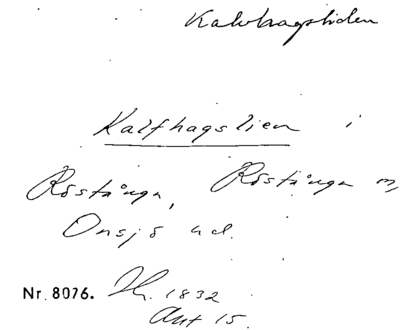 Kalvhagsliden
Kalfhagslien i
Röstånga, Röstånga sn,
Onsjö hd.
Nr. 8076. Jb. 1832
Akt 15.